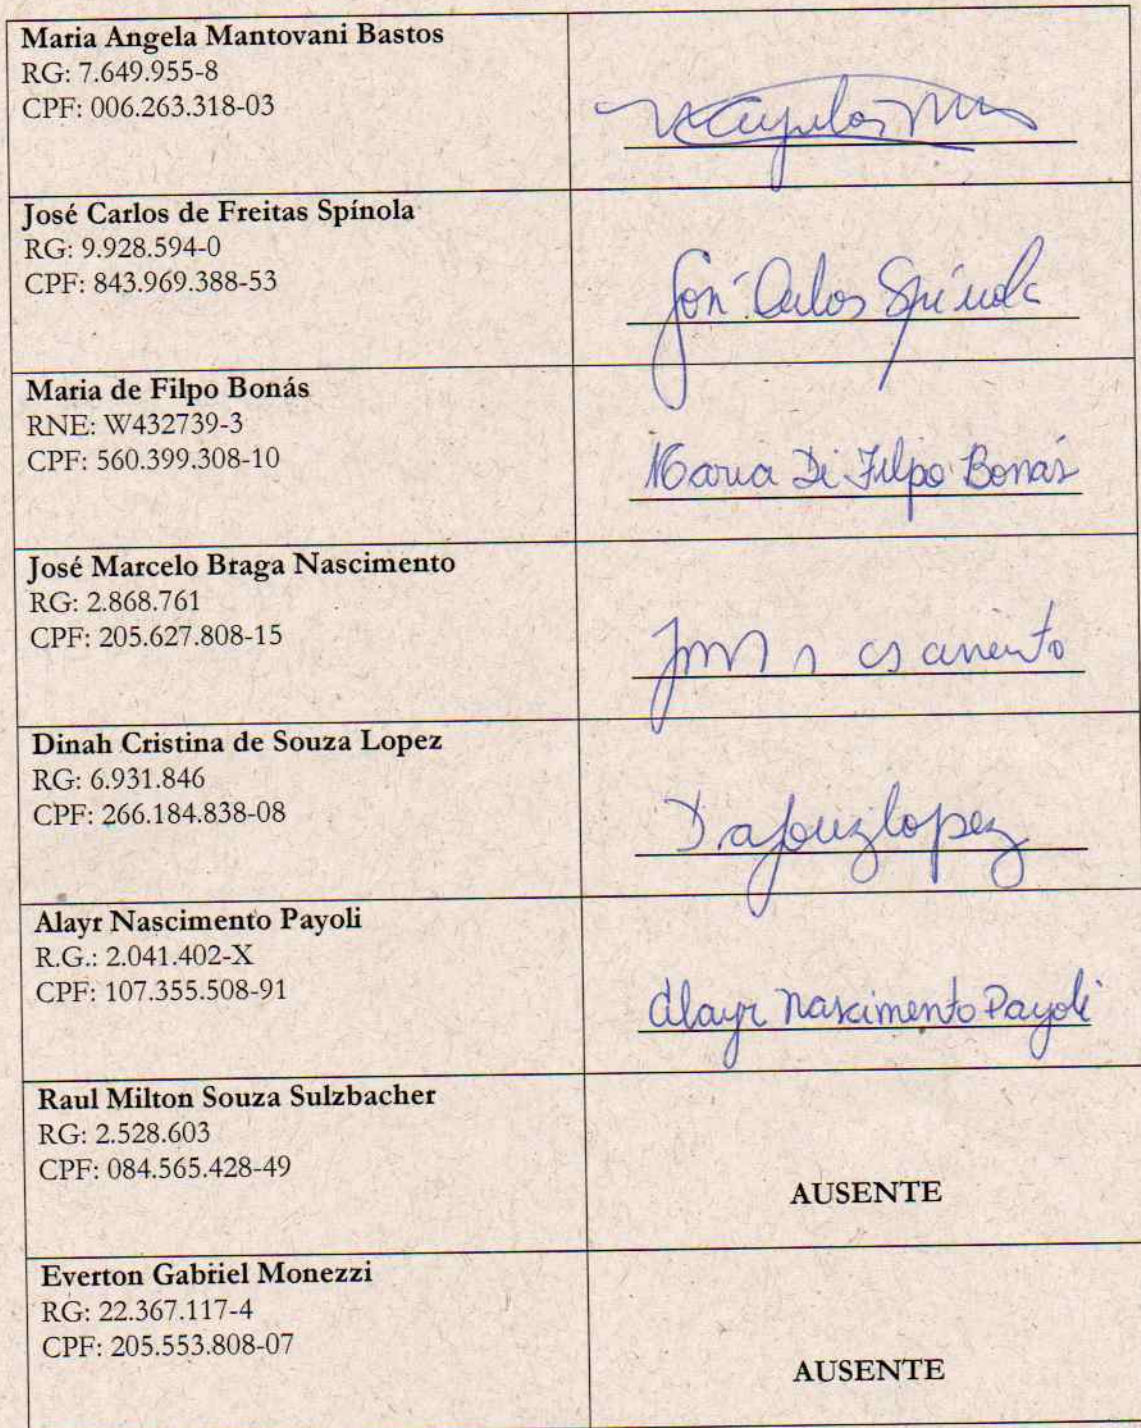 Maria Angela Mantovani Bastos
RG: 7.649.955-8
CPF: 006.263.318-03
José Carlos de Freitas Spínola
RG: 9.928.594-0
CPF: 843.969.388-53
José Carlos Spínola
Maria de Filpo Bonás
RNE: W432739-3
CPF: 560.399.308-10
Maria Di Filpo Bonás
José Marcelo Braga Nascimento
RG: 2.868.761
CPF: 205.627.808-15
Dinah Cristina de Souza Lopez
RG: 6.931.846
CPF: 266.184.838-08
Alayr Nascimento Payoli
R.G.: 2.041.402-X
CPF: 107.355.508-91
Alayr Nascimento Payoli
Raul Milton Souza Sulzbacher
RG: 2.528.603
CPF: 084.565.428-49
AUSENTE
Everton Gabriel Monezzi
RG: 22.367.117-4
CPF: 205.553.808-07
AUSENTE